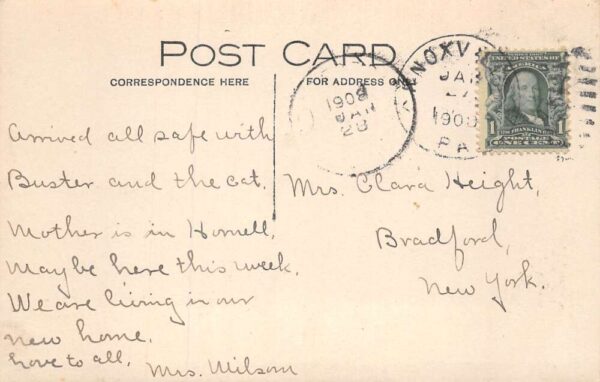 POST CARD
CORRESPONDENCE HERE
FOR ADDRESS ONLY
1908
JAN
28
KNOXV
JAN
27
1908
PA
UNITED STATES OF AMERICA
FRANKLIN
1 1
POSTAGE
ONE CENT
Arrived all safe with
Buster and the cat.
Mother is in Hornell,
Maybe here this week.
We are living in our
new home.
Love to all,
Mrs. Wilson
Mrs. Clara Height,
Bradford,
New York.